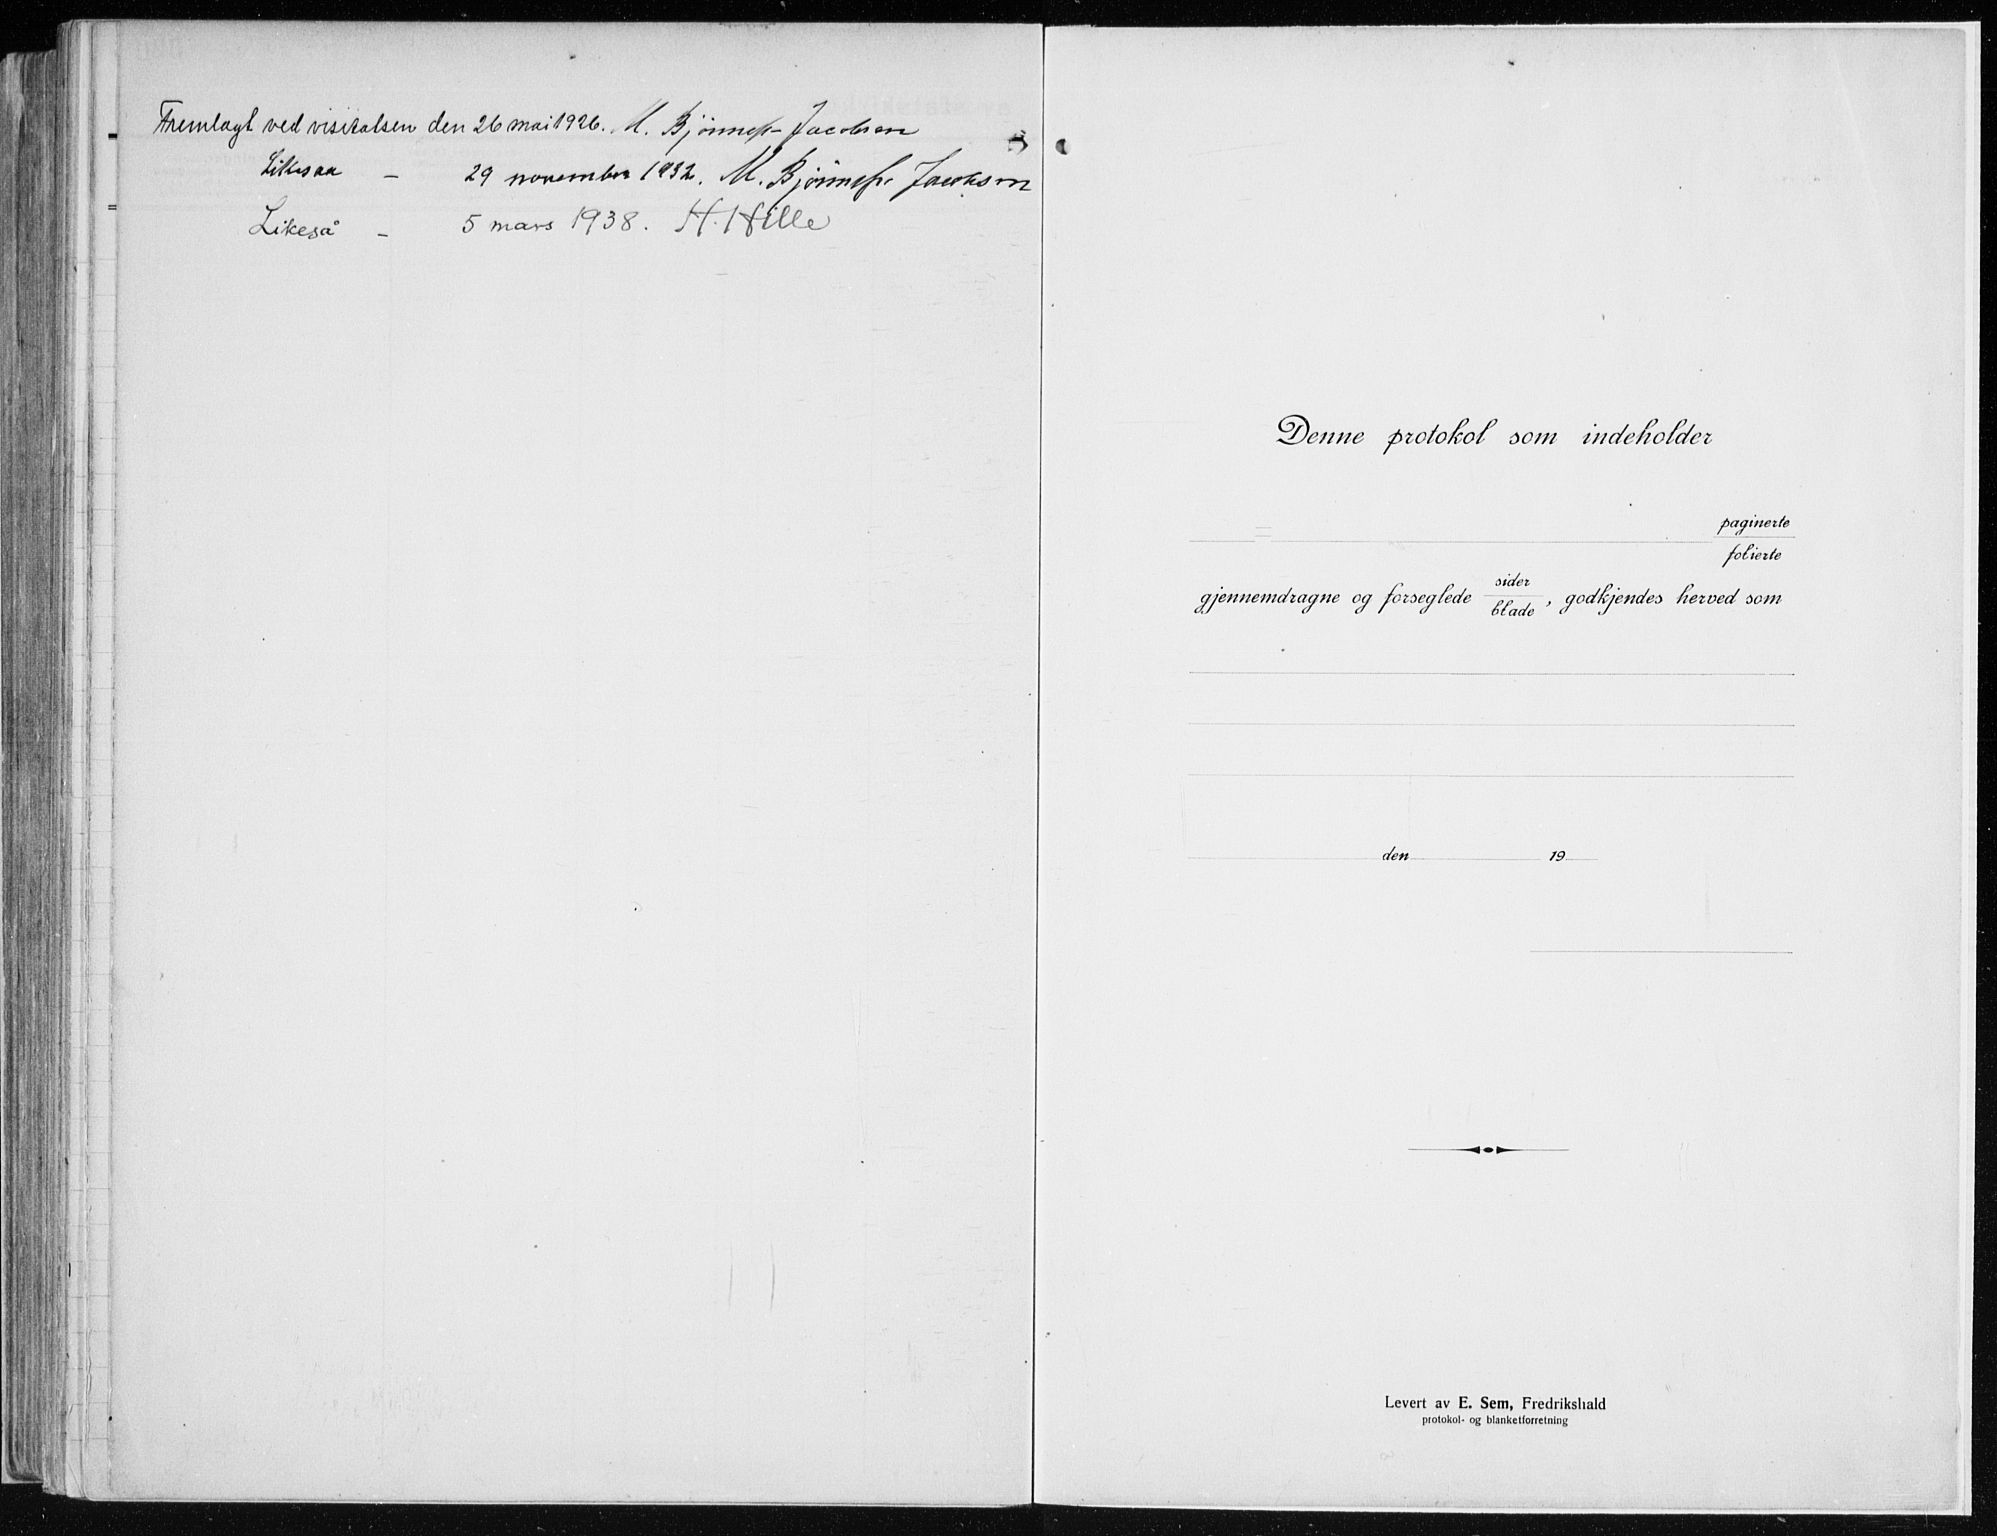 Fremlagt ved visitatsen den 26 mai 1926. M. Bjønness-Jacobsen
Likesaa – 29 november 1932. M. Bjønness-Jacobsen
Likeså – 5 mars 1938. H. Hille
Denne protokol som indeholder
paginerte
folierte
gjennemdragne og forseglede sider
blade, godkjendes herved som
den 19
Levert av E. Sem, Fredrikshald
protokol- og blanketforretning